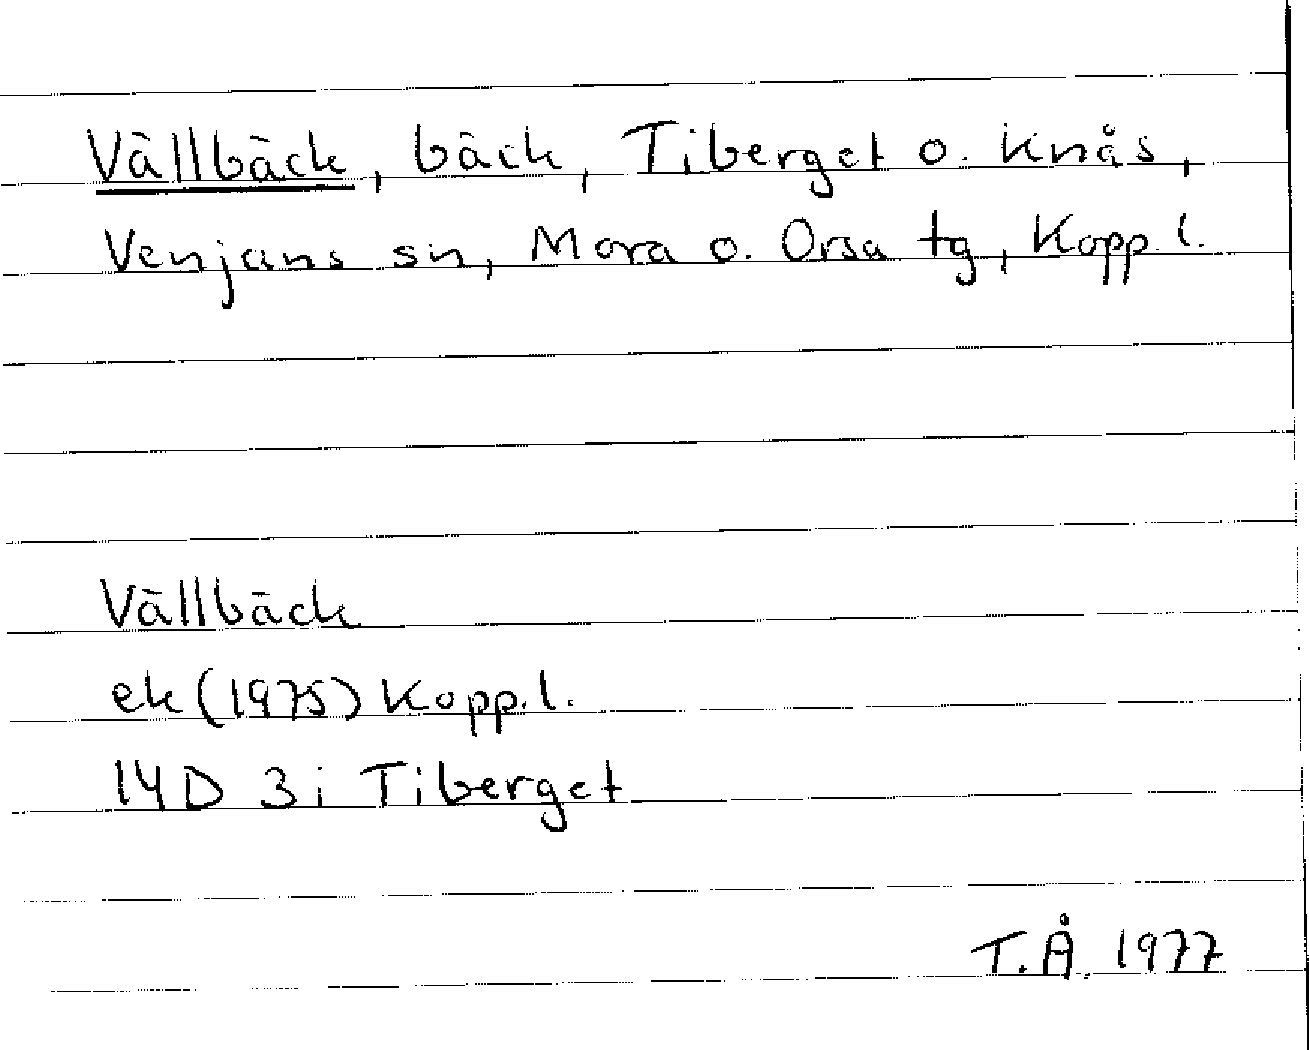 Vällbäck, bäck, Tiberget o. Knås,
Venjans sn, Mora o. Orsa tg, Kopp. l.
Vällbäck
ek (1975) Kopp. l.
14D 3i Tiberget
T.Å. 1977